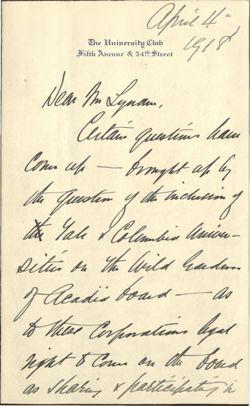 April 4th
1918
The University Club
Fifth Avenue & 54th Street
Dear Mr Lynam,
Certain questions have
come up — brought up by
the question of the inclusion of
the Yale & Columbia Univer-
sities on the Wild Gardens
of Acadia board — as
to these Corporations legal
right to come on the board
as sharing & participating in